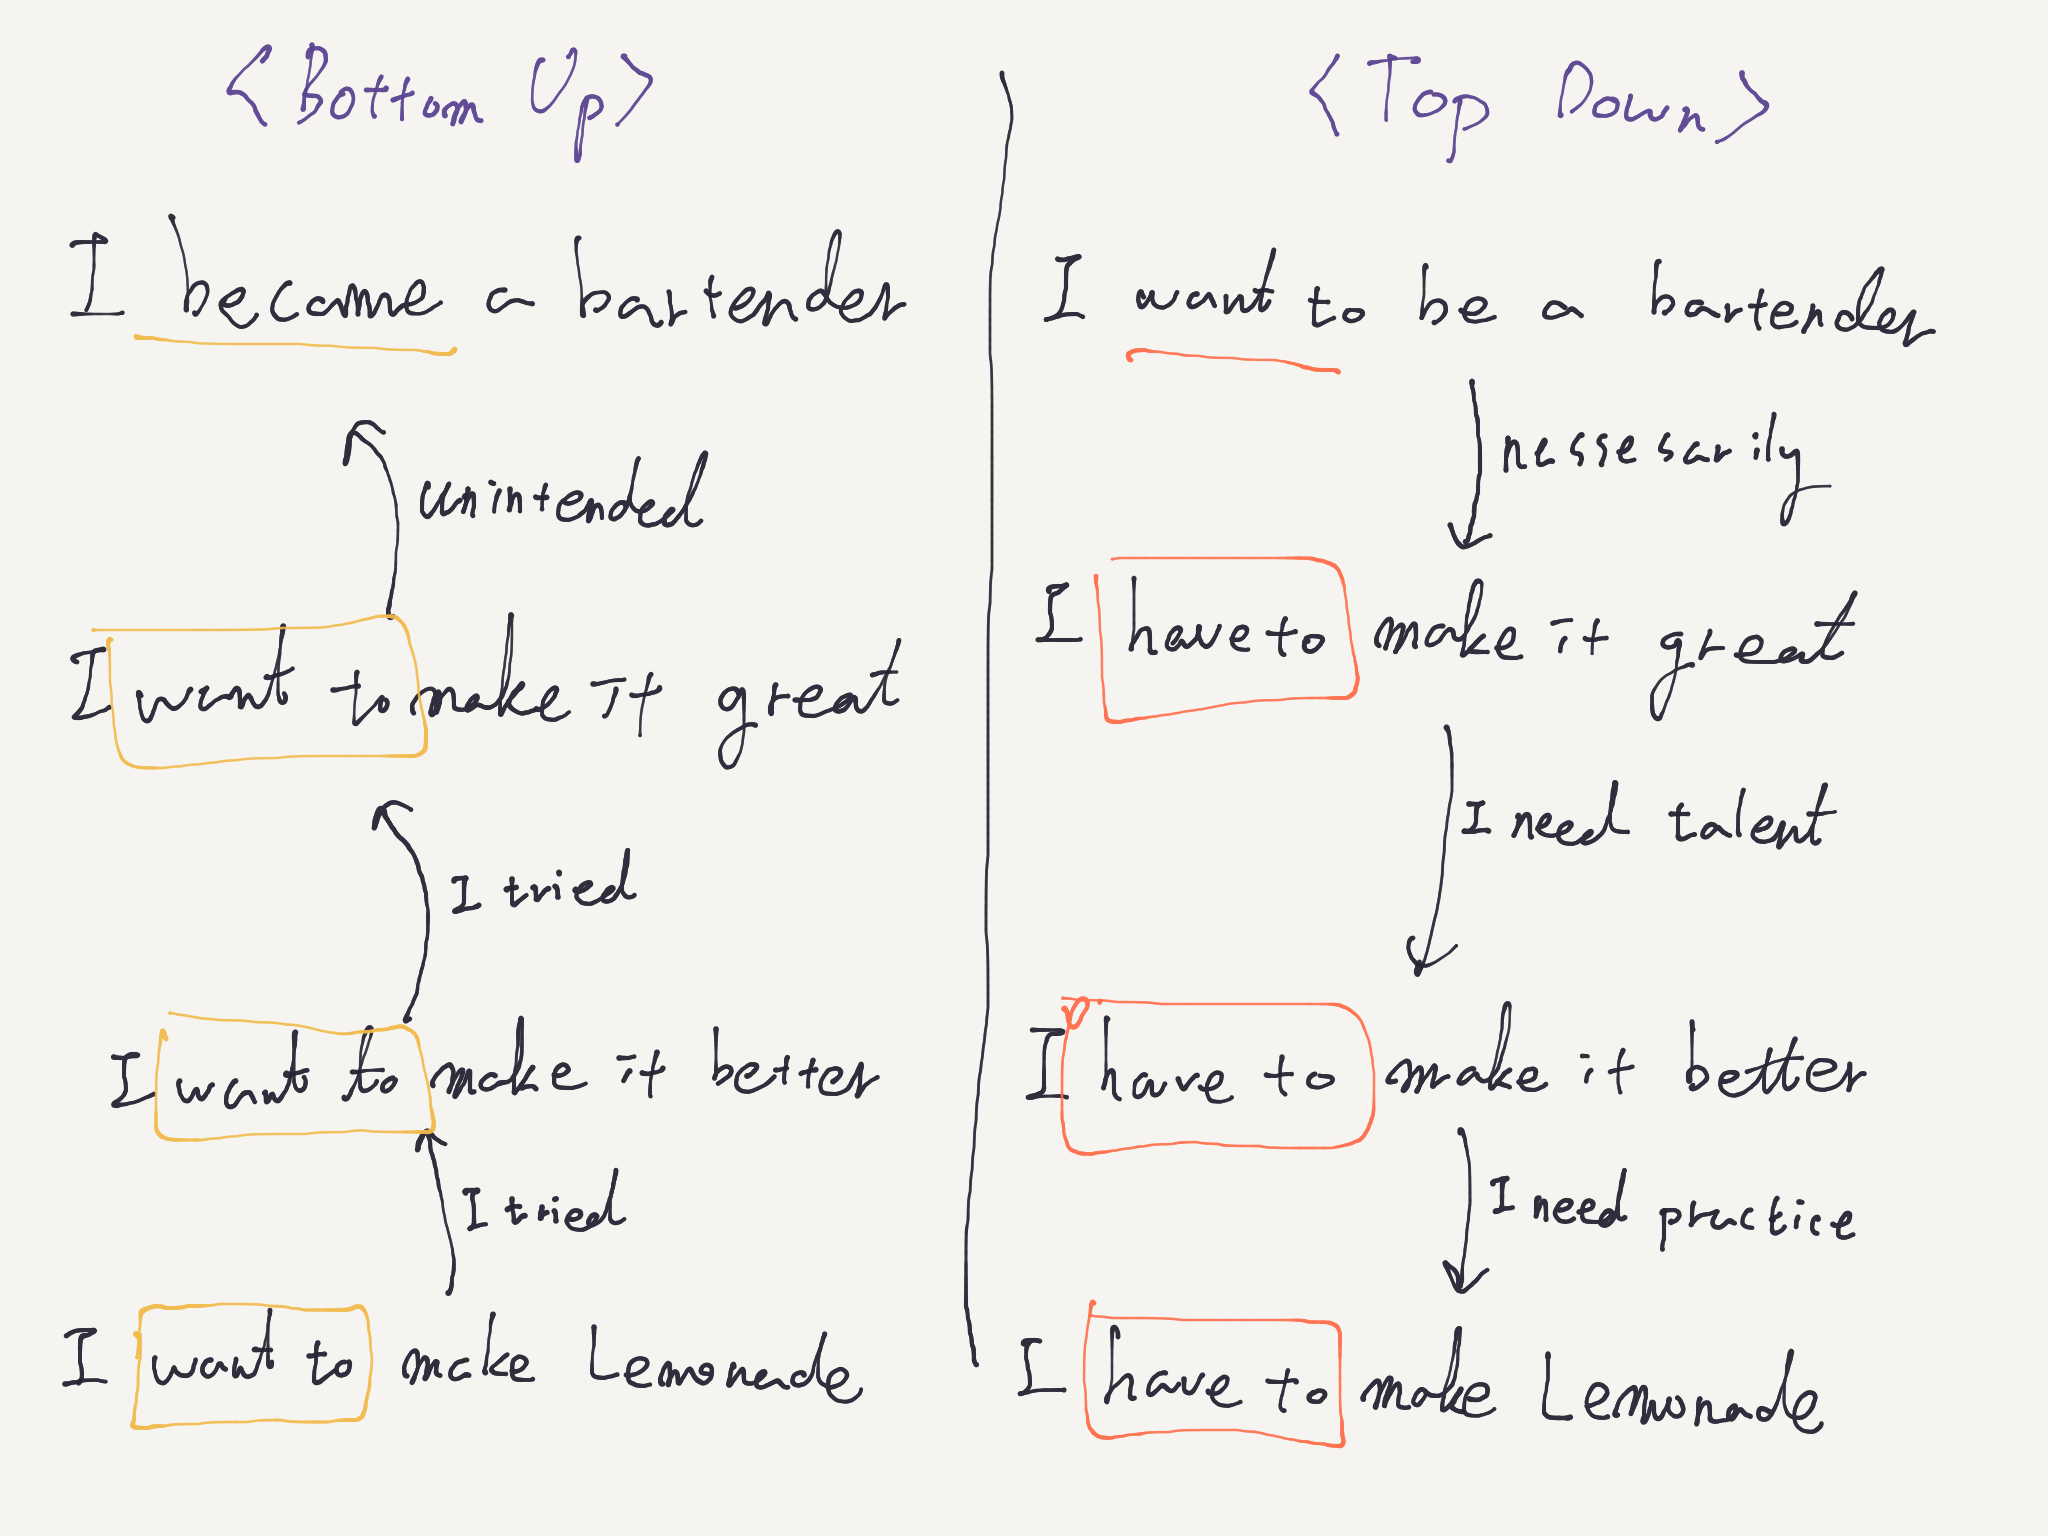 <Bottom Up>
I became a bartender
unintended
I want to make it great
I tried
I want to make it better
I tried
I want to make Lemonade
<Top Down>
I want to be a bartender
nessesarily
I have to make it great
I need talent
I have to make it better
I need practice
I have to make Lemonade